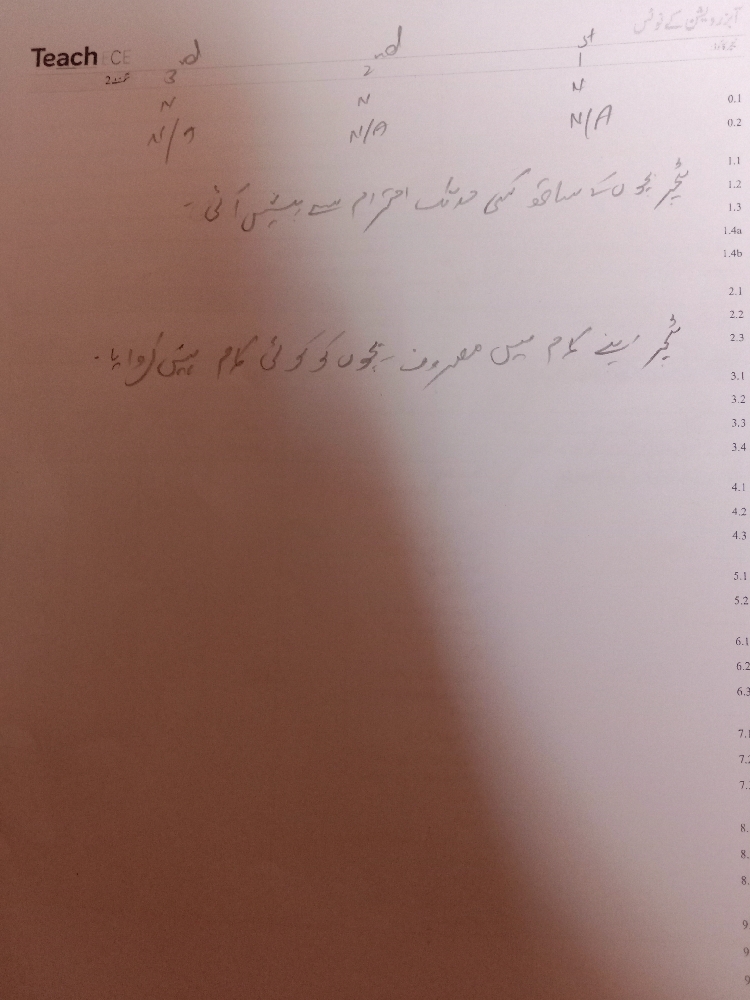 آبزرویشن کے نوٹس
Teach ECE
1st 2nd 3rd
N N N
N/A N/A N/A
0.1
0.2
1.1
1.2
ٹیچر بچوں کے ساتھ کسی حد تک احترام سے پیش آئی۔
1.3
1.4a
1.4b
2.1
2.2
2.3
ٹیچر اپنے کام میں مصروف۔ بچوں کو کوئی کام نہیں کروایا۔
3.1
3.2
3.3
3.4
4.1
4.2
4.3
5.1
5.2
6.1
6.2
6.3
7.1
7.2
7.
8.
8.
8.
9.
9
9